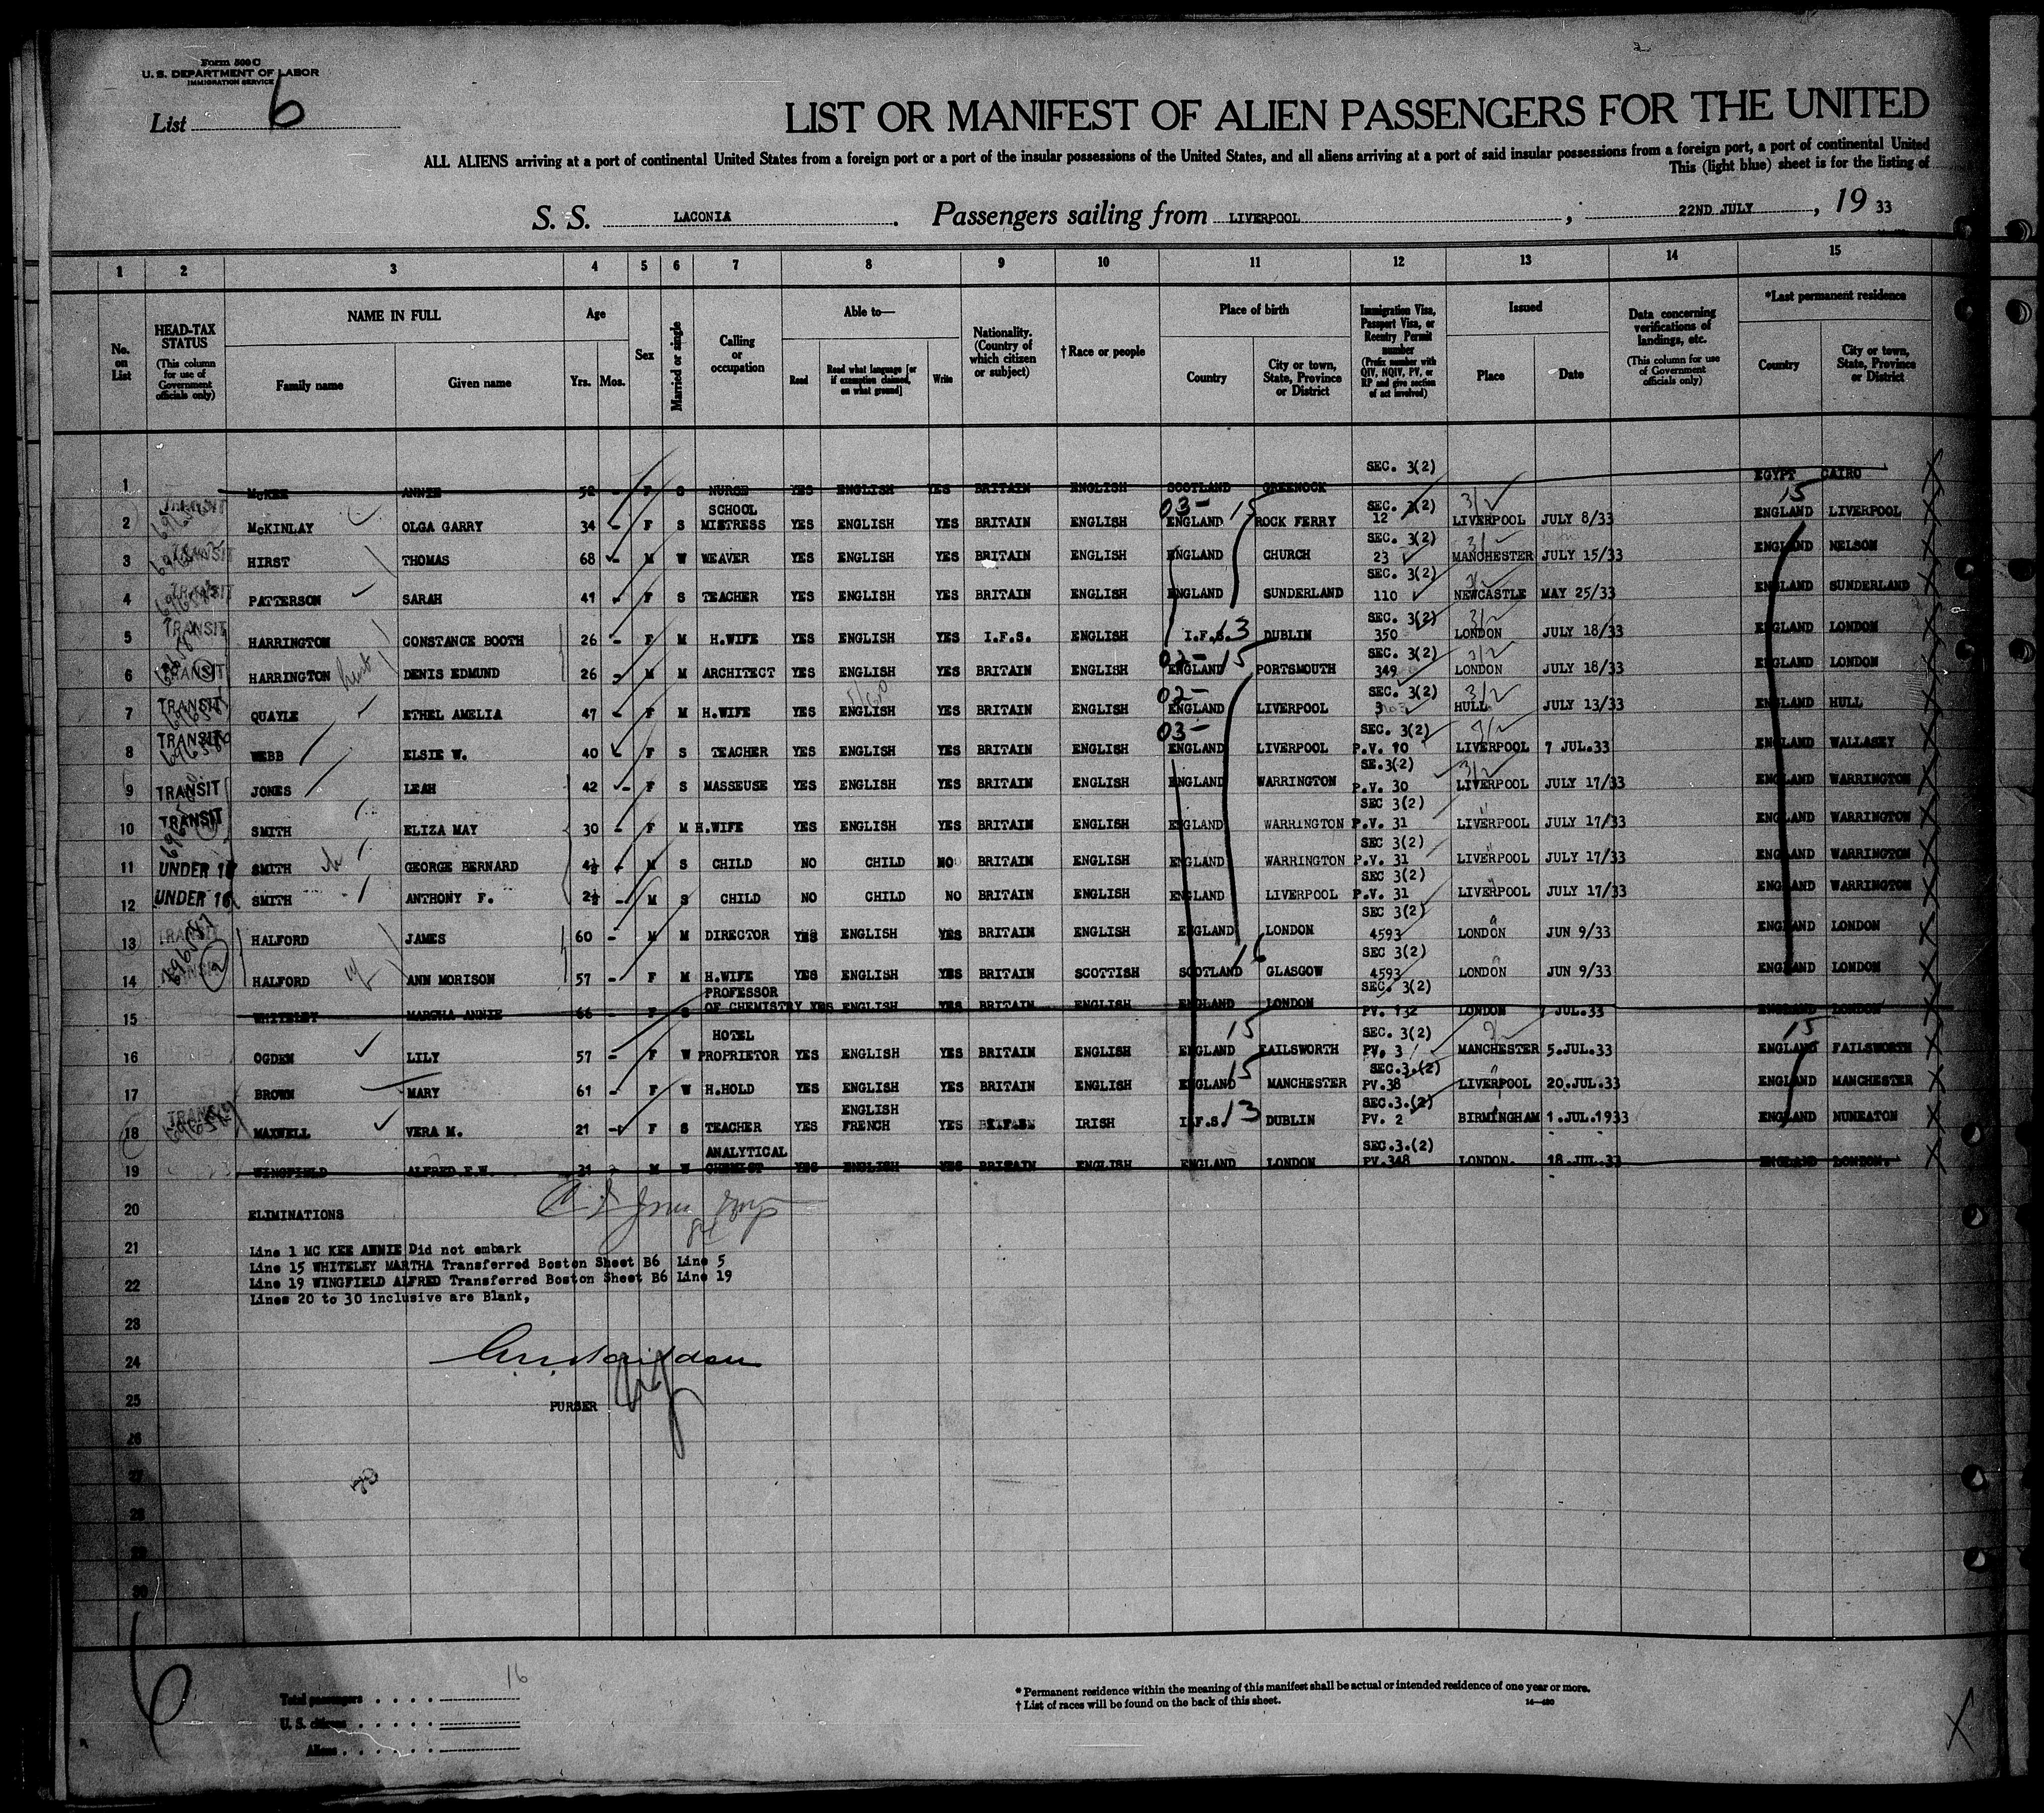 Form 500 C
U. S. DEPARTMENT OF LABOR
IMMIGRATION SERVICE
List 6
LIST OR MANIFEST OF ALIEN PASSENGERS FOR THE UNITED
ALL ALIENS arriving at a port of continental United States from a foreign port or a port of the insular possessions of the United States, and all aliens arriving at a port of said insular possessions from a foreign port, a port of continental United
This (light blue) sheet is for the listing of
S. S. LACONIA. Passengers sailing from LIVERPOOL, 22ND JULY, 19 33
1 2 3 4 5 6 7 8 9 10 11 12 13 14 15
No. on List
HEAD-TAX STATUS (This column for use of Government officials only)
NAME IN FULL Family name Given name
Age Yrs. Mos.
Sex
Married or single
Calling or occupation
Able to— Read Read what language [or if exemption claimed, on what ground] Write
Nationality. (Country of which citizen or subject)
†Race or people
Place of birth Country City or town, State, Province or District
Immigration Visa, Passport Visa, or Reentry Permit number (Prefix number with QIV, NQIV, PV, or RP and give section of act involved)
Issued Place Date
Data concerning verifications of landings, etc. (This column for use of Government officials only)
*Last permanent residence Country City or town, State, Province or District
1 McKEE ANNIE 52 - F S NURSE YES ENGLISH YES BRITAIN ENGLISH SCOTLAND GREENOCK SEC. 3(2) EGYPT CAIRO
2 TRANSIT McKINLAY OLGA GARRY 34 - F S SCHOOL MISTRESS YES ENGLISH YES BRITAIN ENGLISH ENGLAND ROCK FERRY SEC. 3(2) 12 LIVERPOOL JULY 8/33 ENGLAND LIVERPOOL
3 TRANSIT HIRST THOMAS 68 - M W WEAVER YES ENGLISH YES BRITAIN ENGLISH ENGLAND CHURCH SEC. 3(2) 23 MANCHESTER JULY 15/33 ENGLAND NELSON
4 TRANSIT PATTERSON SARAH 41 - F S TEACHER YES ENGLISH YES BRITAIN ENGLISH ENGLAND SUNDERLAND SEC. 3(2) 110 NEWCASTLE MAY 25/33 ENGLAND SUNDERLAND
5 TRANSIT HARRINGTON CONSTANCE BOOTH 26 - F M H.WIFE YES ENGLISH YES I.F.S. ENGLISH I.F.S. 13 DUBLIN SEC. 3(2) 350 LONDON JULY 18/33 ENGLAND LONDON
6 TRANSIT HARRINGTON DENIS EDMUND 26 - M M ARCHITECT YES ENGLISH YES BRITAIN ENGLISH ENGLAND PORTSMOUTH SEC. 3(2) 349 LONDON JULY 18/33 ENGLAND LONDON
7 TRANSIT QUAYLE ETHEL AMELIA 47 - F M H.WIFE YES ENGLISH YES BRITAIN ENGLISH ENGLAND LIVERPOOL SEC. 3(2) 3 HULL JULY 13/33 ENGLAND HULL
8 TRANSIT WEBB ELSIE W. 40 F S TEACHER YES ENGLISH YES BRITAIN ENGLISH ENGLAND LIVERPOOL SEC. 3(2) P.V. 10 LIVERPOOL 7 JUL.33 ENGLAND WALLASEY
9 TRANSIT JONES LEAH 42 - F S MASSEUSE YES ENGLISH YES BRITAIN ENGLISH ENGLAND WARRINGTON SE.3(2) P.V. 30 LIVERPOOL JULY 17/33 ENGLAND WARRINGTON
10 TRANSIT SMITH ELIZA MAY 30 - F M H.WIFE YES ENGLISH YES BRITAIN ENGLISH ENGLAND WARRINGTON SEC 3(2) P.V. 31 LIVERPOOL JULY 17/33 ENGLAND WARRINGTON
11 UNDER 16 SMITH GEORGE BERNARD 4½ - M S CHILD NO CHILD NO BRITAIN ENGLISH ENGLAND WARRINGTON SEC 3(2) P.V. 31 LIVERPOOL JULY 17/33 ENGLAND WARRINGTON
12 UNDER 16 SMITH ANTHONY F. 2½ - M S CHILD NO CHILD NO BRITAIN ENGLISH ENGLAND LIVERPOOL SEC 3(2) P.V. 31 LIVERPOOL JULY 17/33 ENGLAND WARRINGTON
13 TRANSIT HALFORD JAMES 60 - M M DIRECTOR YES ENGLISH YES BRITAIN ENGLISH ENGLAND LONDON SEC 3(2) 4593 LONDON JUN 9/33 ENGLAND LONDON
14 HALFORD ANN MORISON 57 - F M H.WIFE YES ENGLISH YES BRITAIN SCOTTISH SCOTLAND GLASGOW SEC 3(2) 4593 LONDON JUN 9/33 ENGLAND LONDON
15 WHITELEY MARTHA ANNIE 66 - F S PROFESSOR OF CHEMISTRY YES ENGLISH YES BRITAIN ENGLISH ENGLAND LONDON SEC. 3(2) PV. 132 LONDON 7 JUL.33 ENGLAND LONDON
16 OGDEN LILY 57 - F W HOTEL PROPRIETOR YES ENGLISH YES BRITAIN ENGLISH ENGLAND FAILSWORTH SEC. 3(2) PV. 3 MANCHESTER 5.JUL.33 ENGLAND FAILSWORTH
17 BROWN MARY 61 - F W H.HOLD YES ENGLISH YES BRITAIN ENGLISH ENGLAND MANCHESTER SEC.3.(2) PV.38 LIVERPOOL 20.JUL.33 ENGLAND MANCHESTER
18 MAXWELL VERA M. 21 - F S TEACHER YES ENGLISH FRENCH YES BRITAIN IRISH I.F.S. 13 DUBLIN SEC.3.(2) PV. 2 BIRMINGHAM 1.JUL.1933 ENGLAND NUNEATON
19 WINGFIELD ALFRED.F.W. 31 - M W ANALYTICAL CHEMIST YES ENGLISH YES BRITAIN ENGLISH ENGLAND LONDON SEC.3.(2) PV.348 LONDON. 18 JUL.33 ENGLAND LONDON.
20 ELIMINATIONS
21 Line 1 MC KEE ANNIE Did not embark
Line 15 WHITELEY MARTHA Transferred Boston Sheet B6 Line 5
22 Line 19 WINGFIELD ALFRED Transferred Boston Sheet B6 Line 19
Lines 20 to 30 inclusive are Blank,
23
24
25 PURSER
26
27
28
29
30
6
Total passengers . . . . 16
U. S. citizens . . . . .
Aliens . . . . . .
* Permanent residence within the meaning of this manifest shall be actual or intended residence of one year or more.
† List of races will be found on the back of this sheet.
14—430